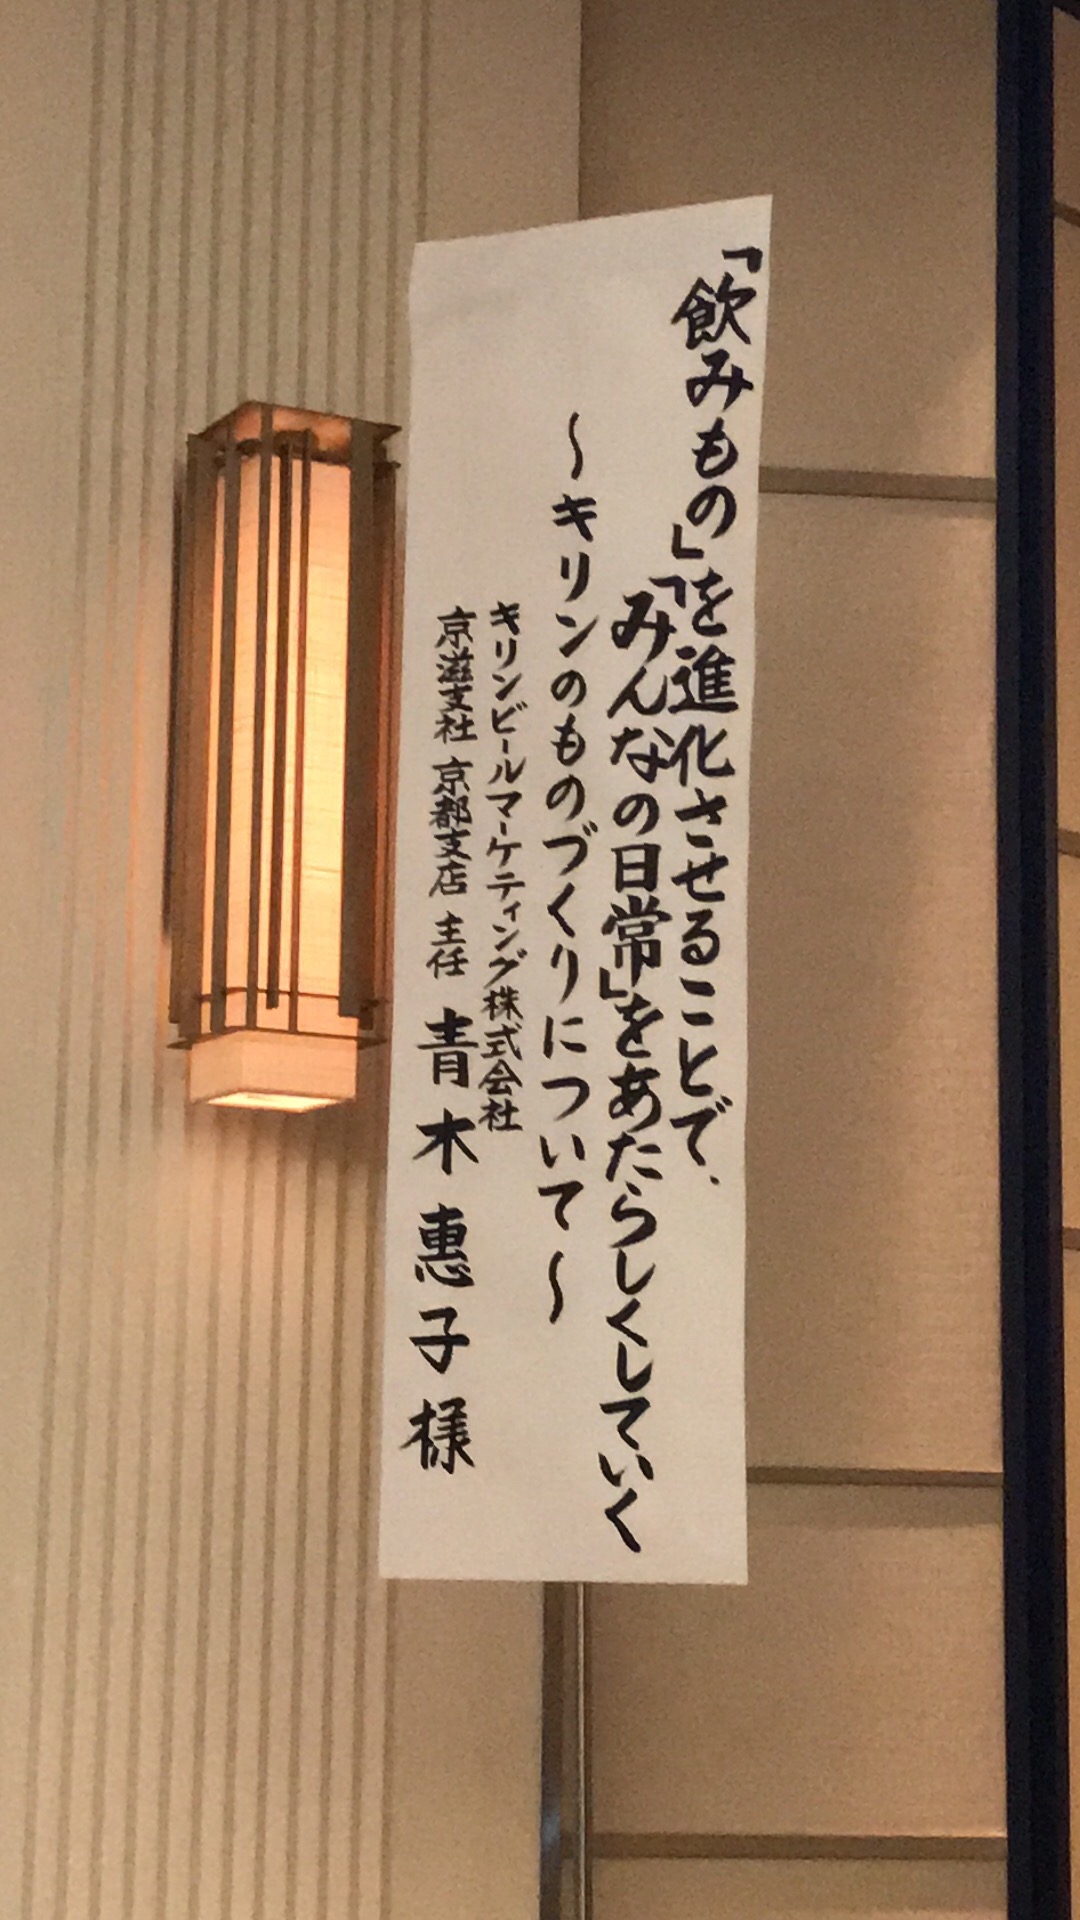 「飲みもの」を進化させることで、
「みんなの日常」をあたらしくしていく
〜キリンのものづくりについて〜
キリンビールマーケティング株式会社
京滋支社 京都支店 主任 青木恵子様